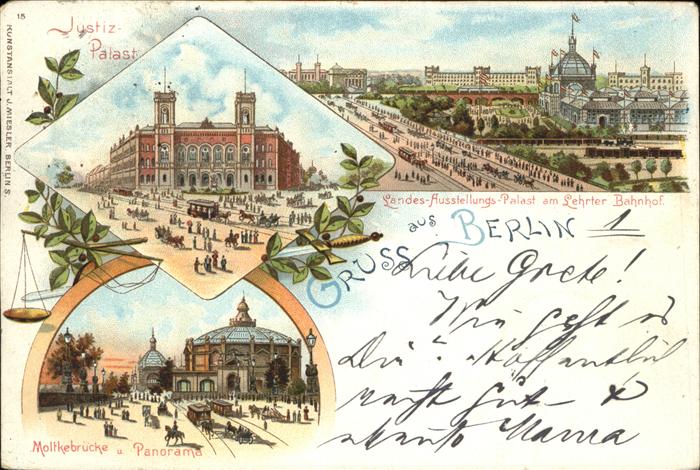 15
KUNSTANSTALT J. MIESLER, BERLIN S.
Justiz-
Palast
Landes-Ausstellungs-Palast am Lehrter Bahnhof.
GRUSS aus BERLIN
1
Liebe Grete!
Wie geht es
Dir? Hoffentlich
recht gut
Mama
Moltkebrücke u Panorama